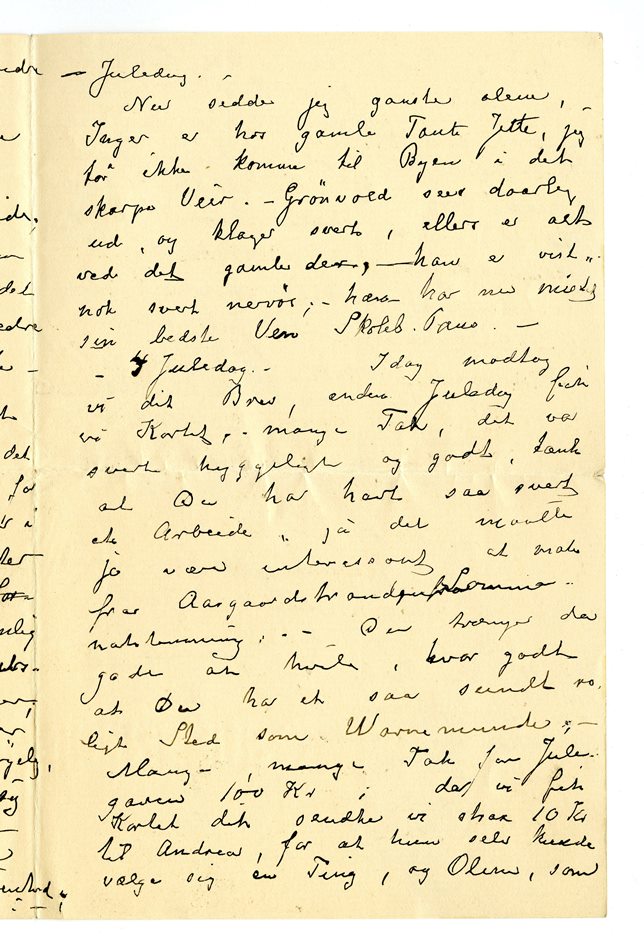 — Juledag. –
Nu sedder jeg ganske alene,
Inger er hos gamle Tante Jette, jeg
tør ikke komme til Byen i det
skarpe Veir. – Grönvold sees daarlig
ud, og klager svert, ellers er alt
ved det gamle der, – han er vist„
nok svert nervøs; – han har nu mistet
sin bedste Ven Skoleb. –
– 4 Juledag. – Idag modtog
vi dit Brev, anden Juledag fik
vi Kortet, – mange Tak, det var
svert hyggeligt og godt, tænk
at Du har havt saa svert
et Arbeide „ ja det maatte
jo være interessant at male
fra Aasgaardstrand Somme-
natstemning; – – Du trænger da
gode at hvile, hvor godt
at Du har et saa sundt ro„
ligt Sted som Warnemunde; –
Mang– mange Tak for Jule-
gaven 100 Kr ; da vi fik
Kortet dit sendte vi strax 10 Kr
til Andrea, for at hun selv kunde
vælge sig en Ting, og Olene, som